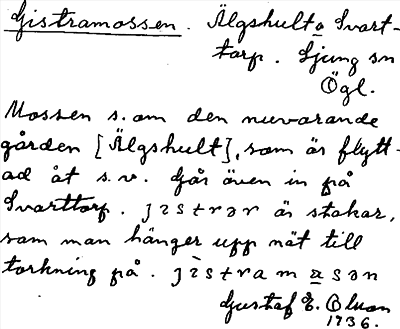 Gistramossen. Älgshult o Svart-
torp. Ljung sn
Ögl.
Mossen s. om den nuvarande
gården [Älgshult], som är flytt-
ad åt s.v. Går även in på
Svarttorp. jɪstrər är stakar,
som man hänger upp nät till
torkning på. jɪ̀stramasən
Gustaf E. Olson
1936.